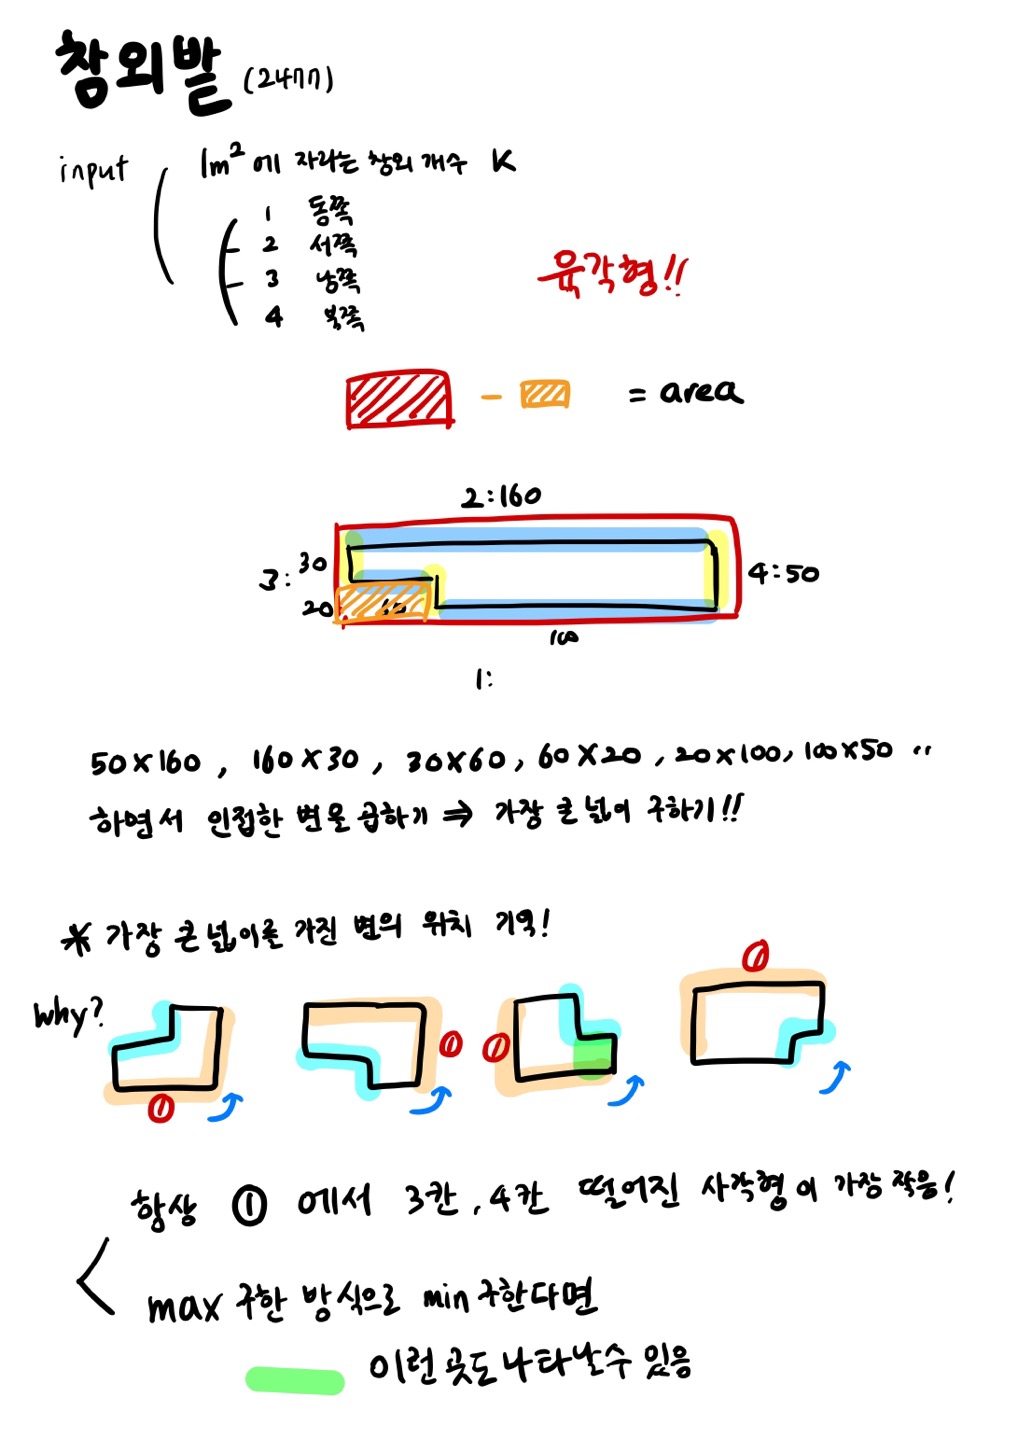 참외밭 (2477)
input 1m²에 자라는 참외 개수 K
1 동쪽
2 서쪽
3 남쪽
4 북쪽
육각형!!
- = area
2:160
3: 30
4:50
20 60
100
1:
50×160, 160×30, 30×60, 60×20, 20×100, 100×50 ..
하면서 인접한 변을 곱하기 ⇒ 가장 큰 넓이 구하기!!
* 가장 큰 넓이를 가진 변의 위치 기억!
why?
① ① ① ①
항상 ① 에서 3칸, 4칸 떨어진 사각형이 가장 작음!
max 구한 방식으로 min 구한다면
이런 곳도 나타날 수 있음